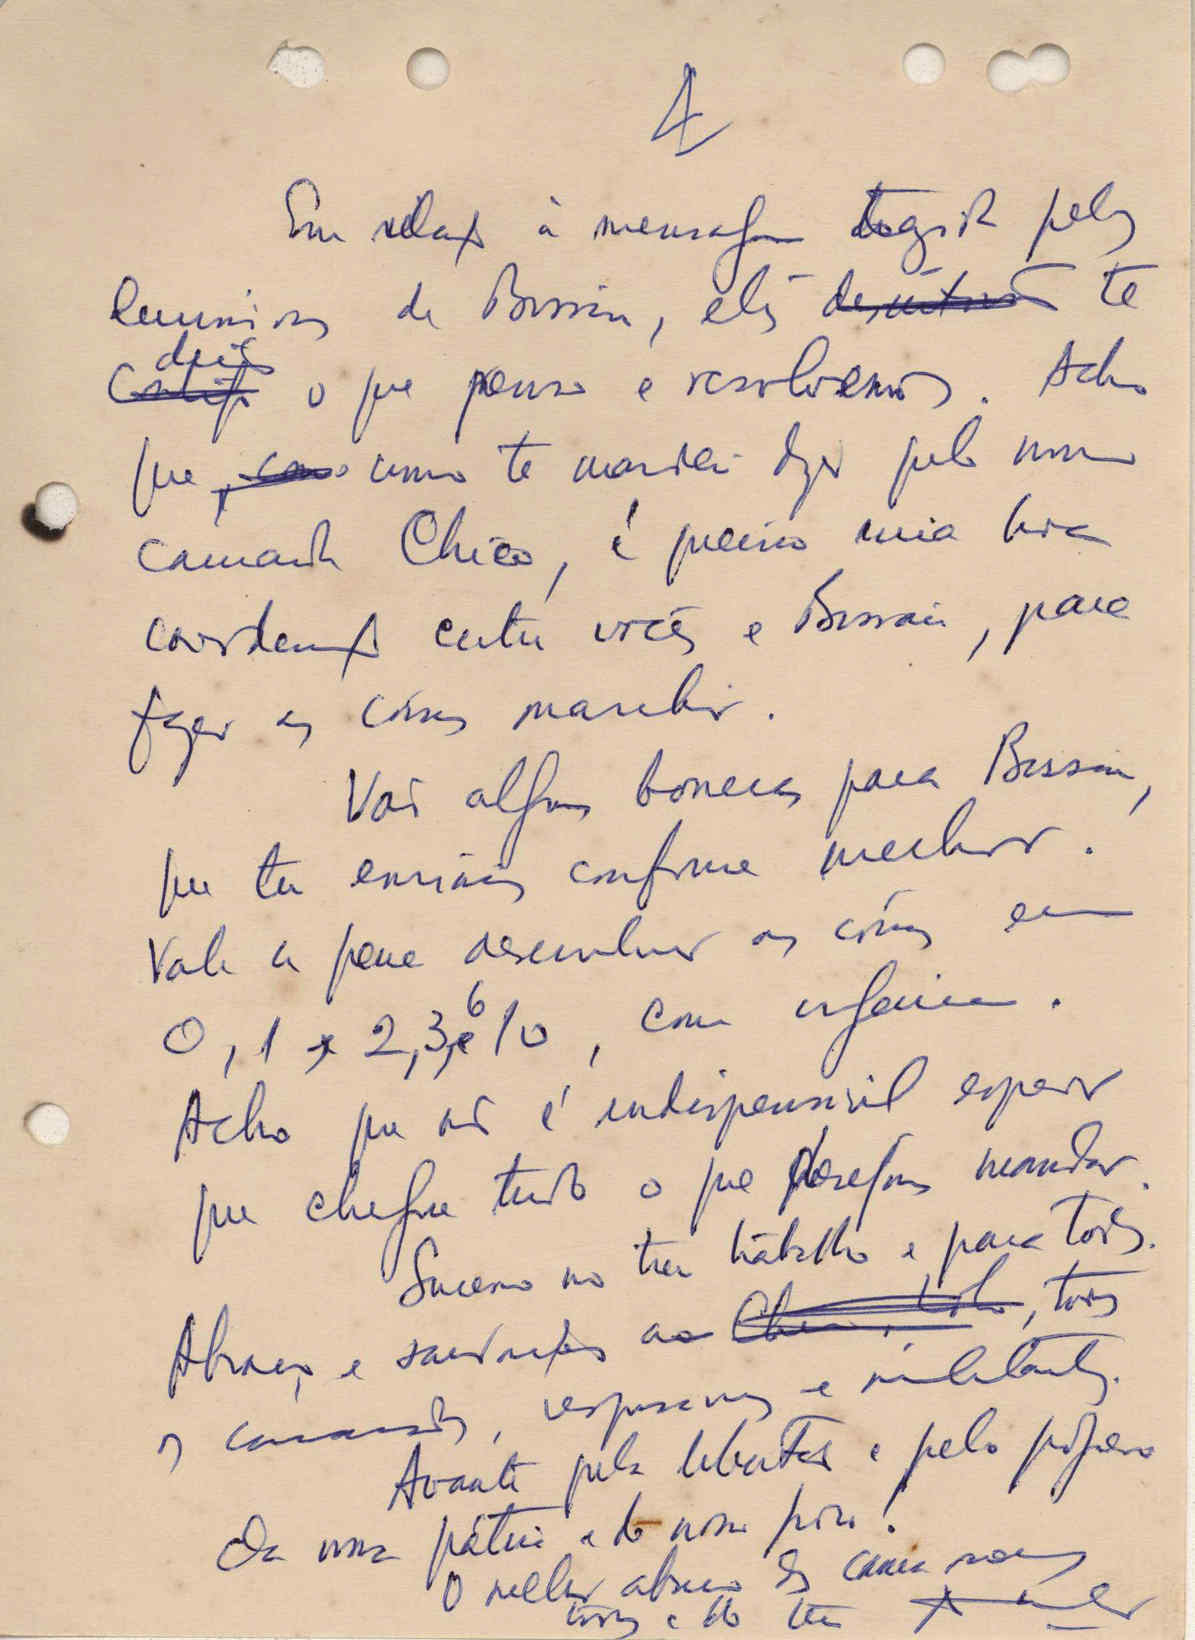 4
Em relação à mensagem trazida pelos
camaradas de Bissau, eles te
dirão o que penso e resolvemos. Acho
que, como te mandei dizer pelo nosso
camarada Chico, é preciso uma boa
coordenação entre vocês e Bissau, para
fazer as coisas marchar.
Vão algumas bonecas para Bissau,
que tu enviarás conforme melhor.
Vale a pena desenvolver as coisas em
0, 1, 2, 3, 6 e 10, com urgência.
Acho que não é indispensável esperar
que chegue tudo o que desejamos mandar.
Sucesso no teu trabalho e para todos.
Abraços e saudações a todos
os camaradas, responsáveis e militantes.
Avante pela libertação e pelo progresso
da nossa pátria e do nosso povo!
O melhor abraço dos camaradas
todos e do teu